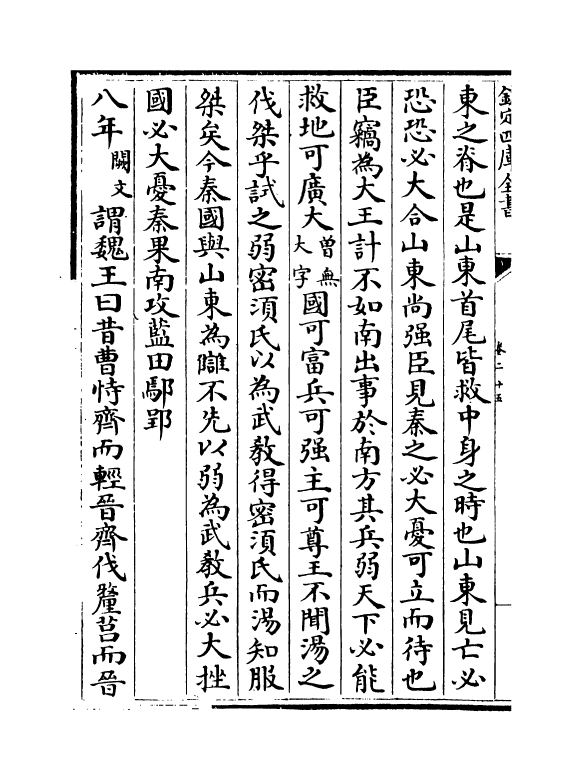 欽定四庫全書
卷二十五
東之脊也是山東首尾皆救中身之時也山東見亡必
恐恐必大合山東尚强臣見秦之必大憂可立而待也
臣竊為大王計不如南出事於南方其兵弱天下必能
救地可廣大曾無大字國可富兵可强主可尊王不聞湯之
伐桀乎試之弱密須氏以為武教得密須氏而湯知服
桀矣今秦國與山東為讎不先以弱為武教兵必大挫
國必大憂秦果南攻藍田鄢郢
八年闕文謂魏王曰昔曹恃齊而輕晉齊伐釐莒而晉